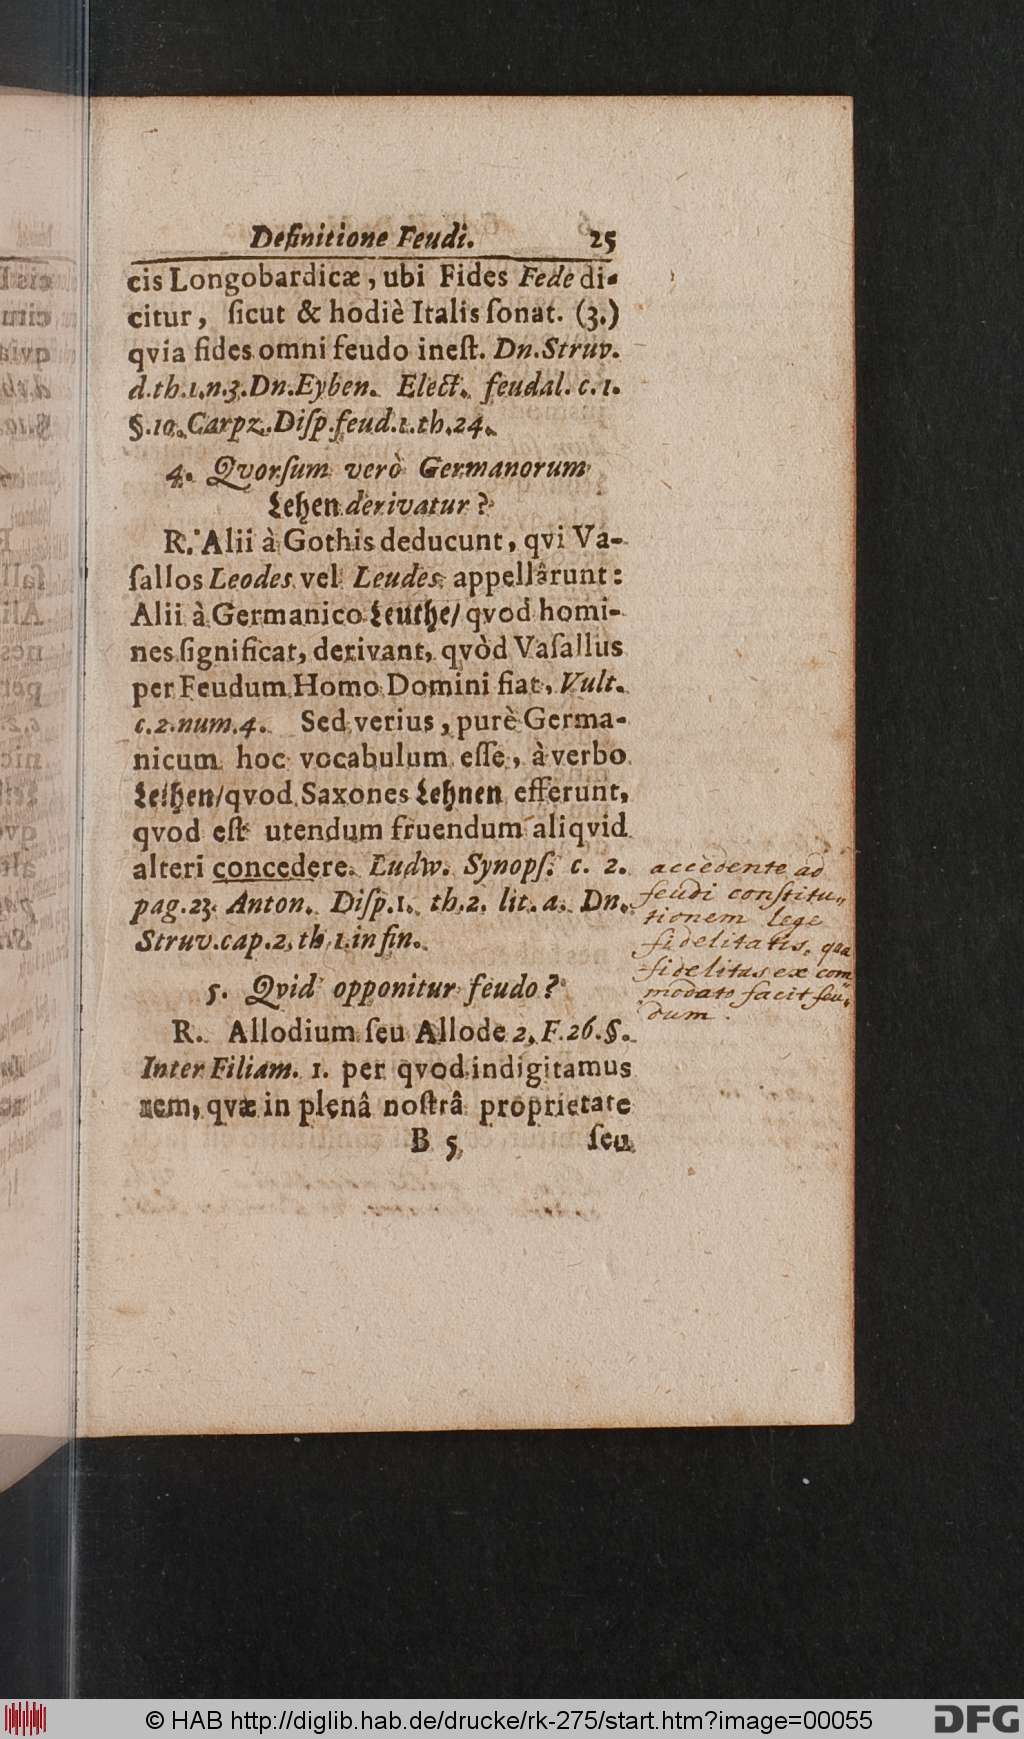 Definitione Feudi. 25
cis Longobardicæ, ubi Fides Fede di-
citur, ſicut & hodiè Italis ſonat. (3.)
qvia fides omni feudo ineſt. Dn. Struv.
d. th. 1. n. 3. Dn. Eyben. Elect. feudal. c. 1.
§. 10. Carpz. Diſp. feud. 1. th. 24.
4. Qvorſum verò Germanorum
Lehen derivatur?
R. Alii à Gothis deducunt, qvi Va-
ſallos Leodes vel Leudes appellârunt:
Alii à Germanico Leuthe/ qvod homi-
nes ſignificat, derivant, qvòd Vaſallus
per Feudum Homo Domini fiat, Vult.
c. 2. num. 4. Sed verius, purè Germa-
nicum hoc vocabulum eſſe, à verbo
Leihen/ qvod Saxones Lehnen efferunt,
qvod eſt utendum fruendum aliqvid
alteri concedere. Ludw. Synopſ. c. 2.
pag. 23. Anton. Diſp. 1. th. 2. lit. a. Dn.
Struv. cap. 2. th. 1. in fin.
accedente ad
feudi conſtitu„
tionem lege
fidelitatis, qua
fidelitas ex com„
modato facit feu„
dum.
5. Qvid opponitur feudo?
R. Allodium ſeu Allode 2. F. 26. §.
Inter Filiam. 1. per qvod indigitamus
rem, qvæ in plenâ noſtrâ proprietate
B 5 ſeu
© HAB http://diglib.hab.de/drucke/rk-275/start.htm?image=00055
DFG